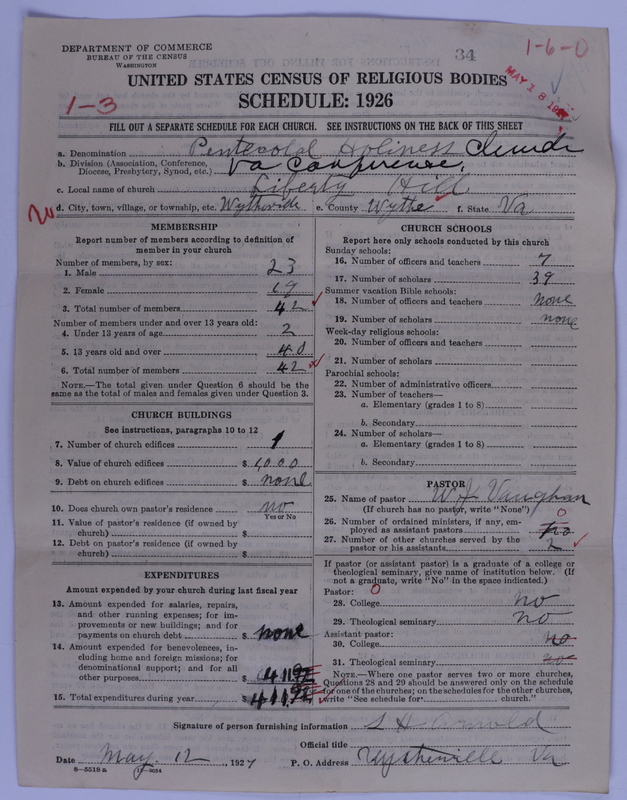 DEPARTMENT OF COMMERCE
BUREAU OF THE CENSUS
WASHINGTON
34
1-6-0
MAY 18 192
1-3
UNITED STATES CENSUS OF RELIGIOUS BODIES
SCHEDULE: 1926
FILL OUT A SEPARATE SCHEDULE FOR EACH CHURCH. SEE INSTRUCTIONS ON THE BACK OF THIS SHEET
a. Denomination Pentecold Holiness Church
b. Division (Association, Conference, Diocese, Presbytery, Synod, etc.) Va Conference,
c. Local name of church Liberty Hill
d. City, town, village, or township, etc. Wytheville e. County Wythe f. State Va
MEMBERSHIP
Report number of members according to definition of
member in your church
Number of members, by sex:
1. Male 23
2. Female 19
3. Total number of members 42
Number of members under and over 13 years old:
4. Under 13 years of age 2
5. 13 years old and over 40
6. Total number of members 42
NOTE.—The total given under Question 6 should be the
same as the total of males and females given under Question 3.
CHURCH BUILDINGS
See instructions, paragraphs 10 to 12
7. Number of church edifices 1
8. Value of church edifices $ 1,000
9. Debt on church edifices $ none
10. Does church own pastor's residence no
Yes or No
11. Value of pastor's residence (if owned by
church) $
12. Debt on pastor's residence (if owned by
church) $
EXPENDITURES
Amount expended by your church during last fiscal year
13. Amount expended for salaries, repairs,
and other running expenses; for im-
provements or new buildings; and for
payments on church debt $ none
14. Amount expended for benevolences, in-
cluding home and foreign missions; for
denominational support; and for all
other purposes $ 411.92
15. Total expenditures during year $ 411.92
CHURCH SCHOOLS
Report here only schools conducted by this church
Sunday schools:
16. Number of officers and teachers 7
17. Number of scholars 39
Summer vacation Bible schools:
18. Number of officers and teachers none
19. Number of scholars none
Week-day religious schools:
20. Number of officers and teachers
21. Number of scholars
Parochial schools:
22. Number of administrative officers
23. Number of teachers—
a. Elementary (grades 1 to 8)
b. Secondary
24. Number of scholars—
a. Elementary (grades 1 to 8)
b. Secondary
PASTOR
25. Name of pastor W H Vaughan
(If church has no pastor, write "None")
26. Number of ordained ministers, if any, em-
ployed as assistant pastors no 0
27. Number of other churches served by the
pastor or his assistants 2
If pastor (or assistant pastor) is a graduate of a college or
theological seminary, give name of institution below. (If
not a graduate, write "No" in the space indicated.)
Pastor: 0
28. College no
29. Theological seminary no
Assistant pastor:
30. College no
31. Theological seminary no
NOTE.—Where one pastor serves two or more churches,
Questions 28 and 29 should be answered only on the schedule
for one of the churches; on the schedules for the other churches,
write "See schedule for church."
Signature of person furnishing information S H Arnold
Official title
Date May 12, 1927 P. O. Address Wytheville Va
8—5518 a 11—9034